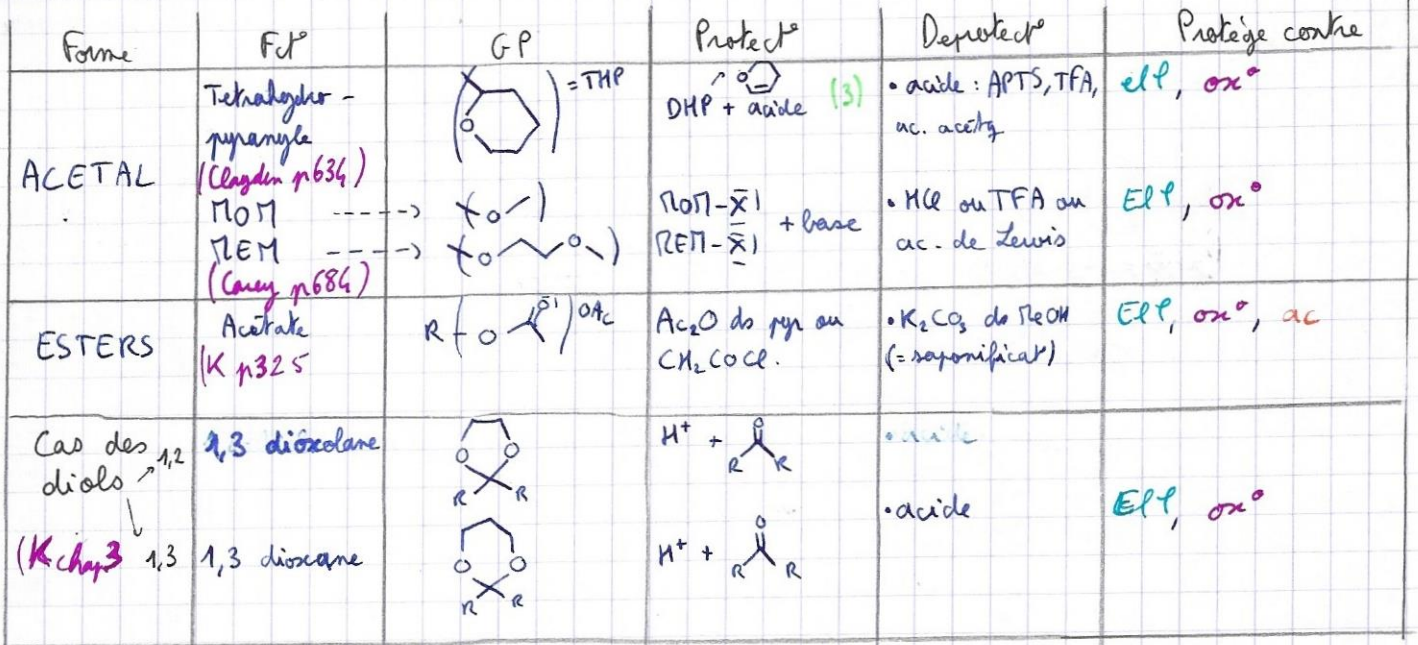 Forme Fct° GP Protect° Deprotect° Protège contre
ACETAL
Tetrahydro-
pyranyle
(Clayden p634)
O
= THP
O
DHP + acide (3)
• acide : APTS, TFA,
ac. acétq
elφ, ox°
MOM
O
MOM-X
+ base
• HCl ou TFA ou
ac. de Lewis
Elφ, ox°
MEM
O O
MEM-X
(Carey p684)
ESTERS
Acétate
(K p325
R O O OAc
Ac2O ds pyr ou
CH2COCl.
• K2CO3 ds MeOH
(= saponificat°)
Elφ, ox°, ac
Cas des
diols 1,2
1,3 dioxolane
O O
R R
H+ + O
R R
• acide
(K chap3 1,3
1,3 dioxane
O O
R R
H+ + O
R R
• acide
Elφ, ox°